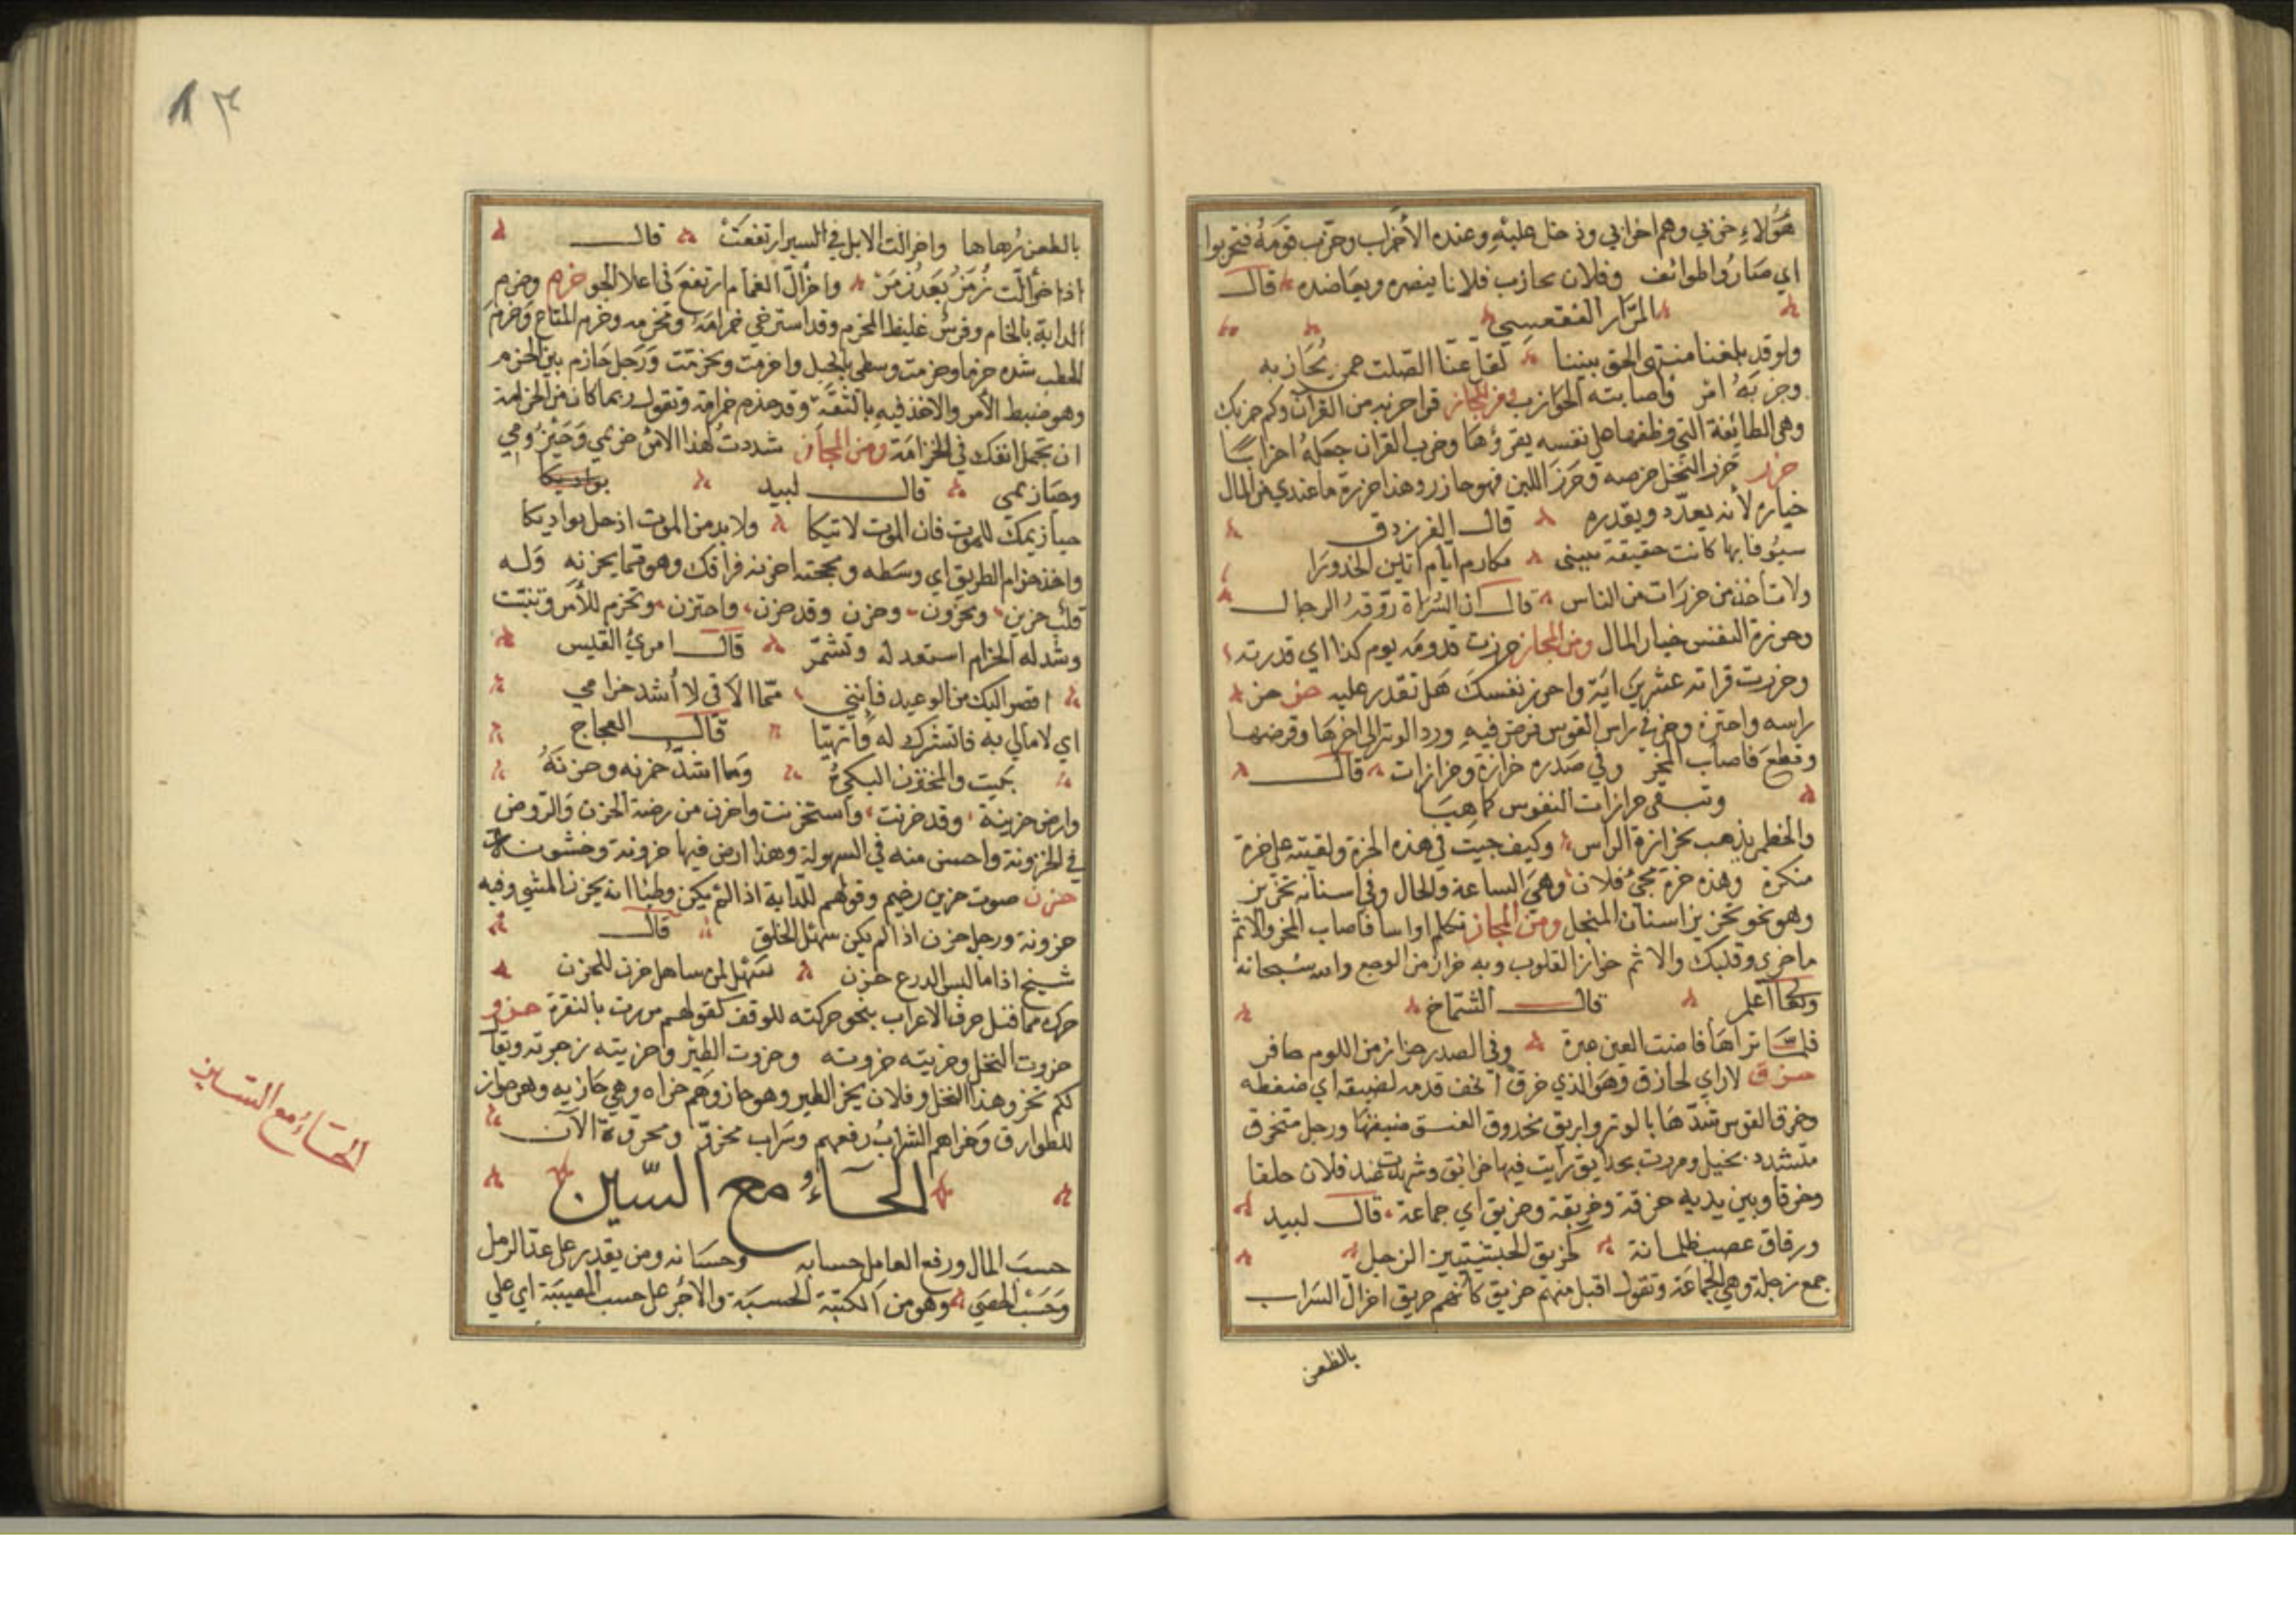 هؤلاء حزبي وهم احزابي ودخل عليه وعنده الأحزاب وحزب قومه فتحزبوا
اي صاروا طوائف وفلان يحازب فلانا ينصره ويعاضده قال
المرار الفقعسي
ولو قد بلغنا منتهى الحق بيننا لقل عنا الصلت عمن يحازبه
وحزبه امر واصابته الحوازب ومن المجاز قرا حزبه من القرآن وكم حزبك
وهي الطائفة التي وظفها على نفسه يقرؤها وحزب القران جعله احزابا
حزر حزر النخل خرصه وحزر اللبن فهو حازر وهذا حزرة ما عندي من المال
خياره لأنه يعدّه ويقدره قال الفرزدق
سيوفا بها كانت حنيفة تبتنى مكارم ايام
ولا تأخذ من حزرات من الناس قال ان السراة روقة الرجال
وحزرة النفس خيار المال ومن المجاز حزرت قدومه يوم كذا اي قدرته
وحزرت قراته عشرين اية واحرز نفسك هل تقدر عليه حزز حز
راسه واحتزه وحز في راس القوس فرض فيه ورد الوتر الى اخرها وقرضها
وقطع فاصاب المحز وفي صدره حزازة وحزازات قال
وتبقى حزازات النفوس كما هيا
والخطمي يذهب بحزازة الراس وكيف جيت في هذه الحزة ولقيته على حزة
منكرة وهذه حزة مجئ فلان وهي الساعة والحال وفي اسنانه تحزيز
وهو نحو تحزيز اسنان المنجل ومن المجاز تكلم او اسا فاصاب المحز والاثم
ما حز في قلبك والاثم حواز القلوب وبه حزاز من الوجع والله سبحانه
وتعالى أعلم قال الشماخ
فلما تراها فاضت العين عبرة وفي الصدر حزاز من اللوم حامز
حزق لا راي لحازق وهو الذي حزق الخف قدمه لضيقه اي ضغطه
وحزق القوس شدها بالوتر وابريق محزوق العنق ضيقها ورجل متحزق
متشدد بخيل ومررت بحدايق رأيت فيها حزائق وشهدت عند فلان حلقا
وحزقا وبين يديه حزقة وحزيقة وحزيق اي جماعة قال لبيد
ورقاق عصب ظلمانة كحزيق الحبشيين الزجل
جمع زجلة وهي الجماعة وتقول اقبل منهم حزيق كانهم حريق احزال السراب
بالظعن
١٣
بالظعن زهاها واحزالت الابل في السير ارتفعت قال
اذا احزألت زمر بعد زمر واحزأل الغمام ارتفع في اعلا الجو حزم وحزم
الدابة بالحزام وفرس غليظ المحزم وقد استرخى حزامه ومحزمه وحزم المتاع وحزم
الحطب شده حزما وحزمت وسطي بالحبل واحتزمت وتحزمت ورجل حازم بين الحزم
وهو ضبط الأمر والاخذ فيه بالثقة وقد حزم حزامة وتقول ربما كان من الحزامة
ان تجعل انفك في الخزامة ومن المجاز شددت لهذا الامر حزيمي وحيزومي
وحيازيمي قال لبيد
حيازيمك للموت فان الموت لاتيكا ولا بد من الموت اذ حل بواديكا
واخذ حزام الطريق اي وسطه ومحجته احزنه فراقك وهو مما يحزنه وله
قلب حزين ومحزون وحزن وقد حزن واحتزن وتحزم للأمر وتثبت
وشد له الحزام استعد له وتشمر قال امرئ القيس
اقصر اليك من الوعيد فإنني مما الاقي لا أشد حزامي
اي لا ابالي به فاتشرك له واتهيا قال العجاج
بكيت والمحتزن البكي وما اشد حزنه وحزنه
وارض حزينة وقد حزنت واستحزنت واحزن من روضة الحزن والروض
في الحزونة واحسن منه في السهولة وهذا ارض فيها حزونة وخشونة
حزن صوت حزين رخيم وقولهم للدابة اذا لم يكن وطيئا انه يحزن المشي وفيه
حزونة ورجل حزن اذا لم يكن سهل الخلق قال
شيخ اذا ما لبس الدرع حزن سهل لمن ساهل حزن للحزن
حرك مما قبل حرف الاعراب بنحو حركته للوقف كقولهم مررت بالنقرة حزو
حزوت النخل وحزيته حزوته وحزوت الطير وحزيته زجرته ويقال
لكم تحزو هذا النخل وفلان يحز الطير وهو حاز وهم حزاه وهي حازيه وهن حواز
للطوارق وحزاهم الشراب رفعهم وسراب محزو ومحروقة الآن
الحآء مع السّين
حسب المال ورفع العامل حسابه وحسبانه ومن يقدر على عد الرمل
وحسب الحصى وهو من الكتبة الحسبة والأجر على حسب المصيبة اي على
الحاء مع السين